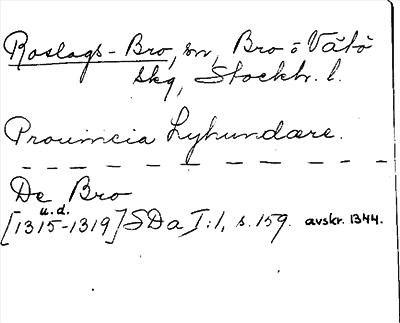 Roslags-Bro, sn, Bro o Vätö
skg, Stockh. l.
Prouincia Lyhundære.
De Bro
u.d.
[1315-1319] SDa I:1, s. 159. avskr. 1344.